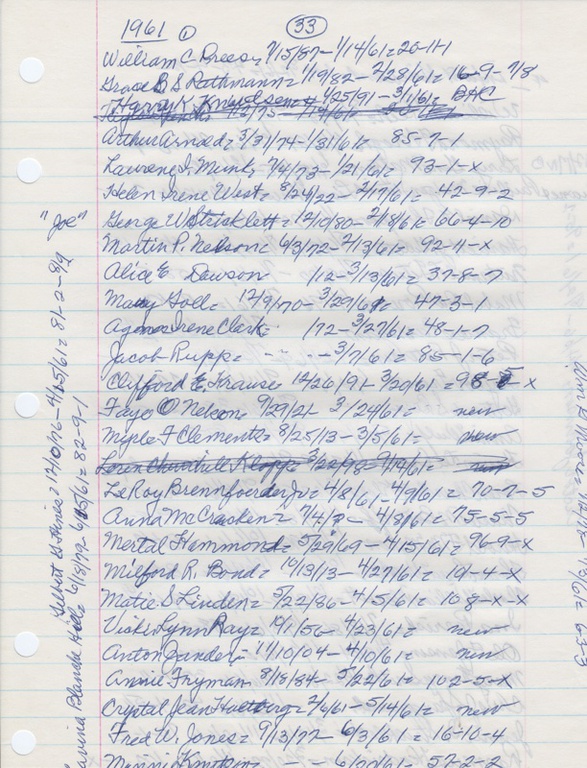 1961 ① 33
William C. Preese 7/15/87 - 1/14/61 = 20-11-1
Grace B S Rathmann = 1/19/82 - 2/28/61 = 16-9-7/8
Harry K Knudson 1/25/91 - 3/1/61 = BAC
Arthur Arnold = 3/31/74 - 1/31/61 = 85-7-1
Lawrence I. Munk = 7/4/73 - 1/21/61 = 93-1-x
Helen Irene West = 8/24/22 - 2/17/61 = 42-9-2
George W Strisklett = 12/10/80 - 2/18/61 = 66-4-10
Martin P. Nelson = 6/3/72 - 2/13/61 = 92-11-x
Alice E. Dawson /12 - 3/13/61 = 37-8-7
Mary Goll = 12/9/70 - 3/29/61 = 47-3-1
Agnes Irene Clark = /72 - 3/27/61 = 48-1-7
Jacob Rupp = - - - 3/7/61 = 85-1-6
Clifford E. Krause 12/26/91 - 3/20/61 = 98 5 - x
Faye O Nelson = 9/29/21 - 3/24/61 = new
Myrle F Clements = 8/25/13 - 3/5/61 = new
Loren Churchill Klopp = 3/22/78 - 9/14/61 = new
LeRoy Brennfoerder Jr = 4/8/61 - 4/9/61 = 70-7-5
Anna McCracken = 7/4/ - 4/8/61 = 75-5-5
Mertal Hammond = 5/29/69 - 4/15/61 = 76-9-x
Milford R. Bond = 10/13/13 - 4/27/61 = 101-4-x
Matie S Linden = 5/22/86 - 4/5/61 = 108-x-x
Vicki Lynn Ray = 10/1/56 - 4/23/61 = new
Anton Janda = 11/10/04 - 4/10/61 = new
Annie Fryman 8/18/84 - 5/22/61 = 102-5-x
Crystal Jean 2/6/61 - 5/14/61 = new
Fred W. Jones = 9/13/77 - 6/3/61 = 16-10-4
Minnie - - 6/20/61 = 57-2-2
"Joe"
Gilbert W Hines = 12/10/76 - 4/25/61 = 81-2-8/9
Lavina Blanche 6/18/79 - 6/15/61 = 82-9-1